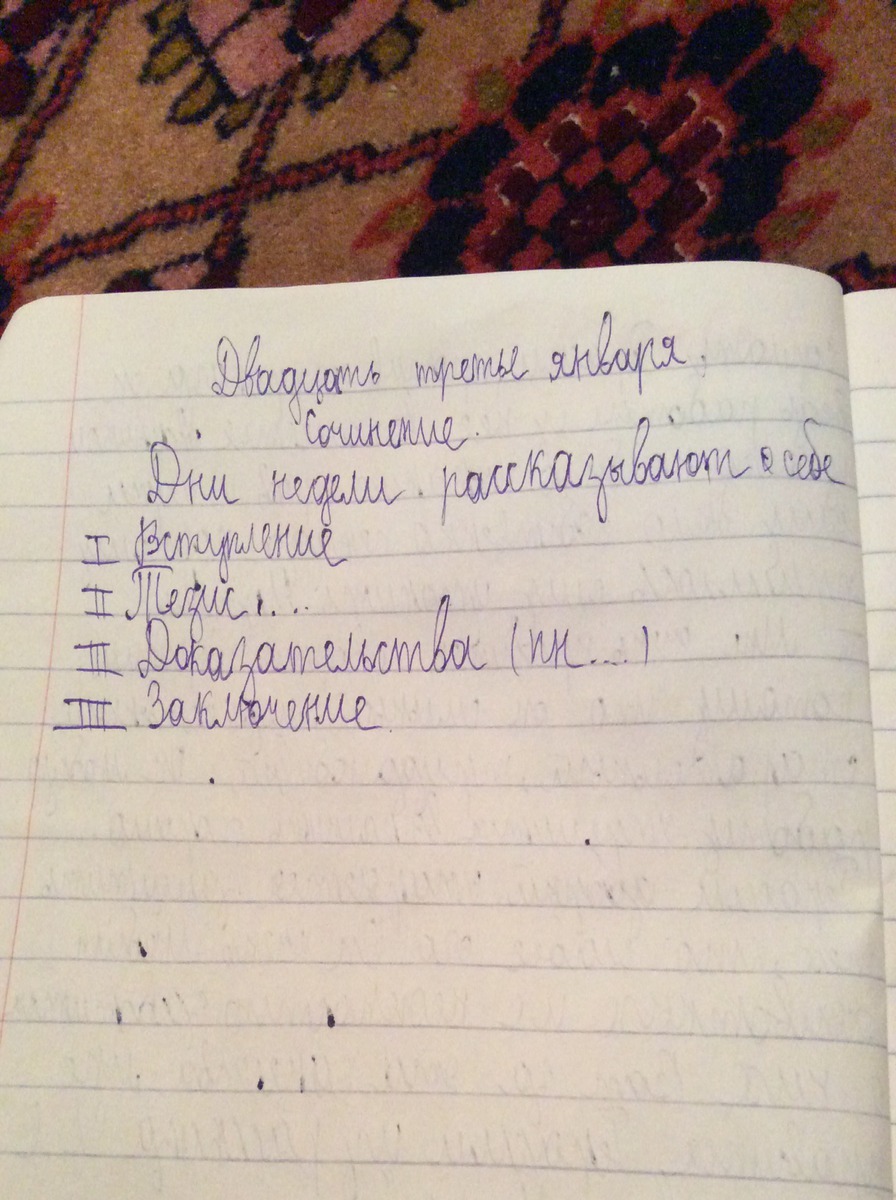 Двадцать третье января.
Сочинение.
Дни недели рассказывают о себе
I Вступление
II Тезис....
III Доказательства (пн....)
IIII Заключение.